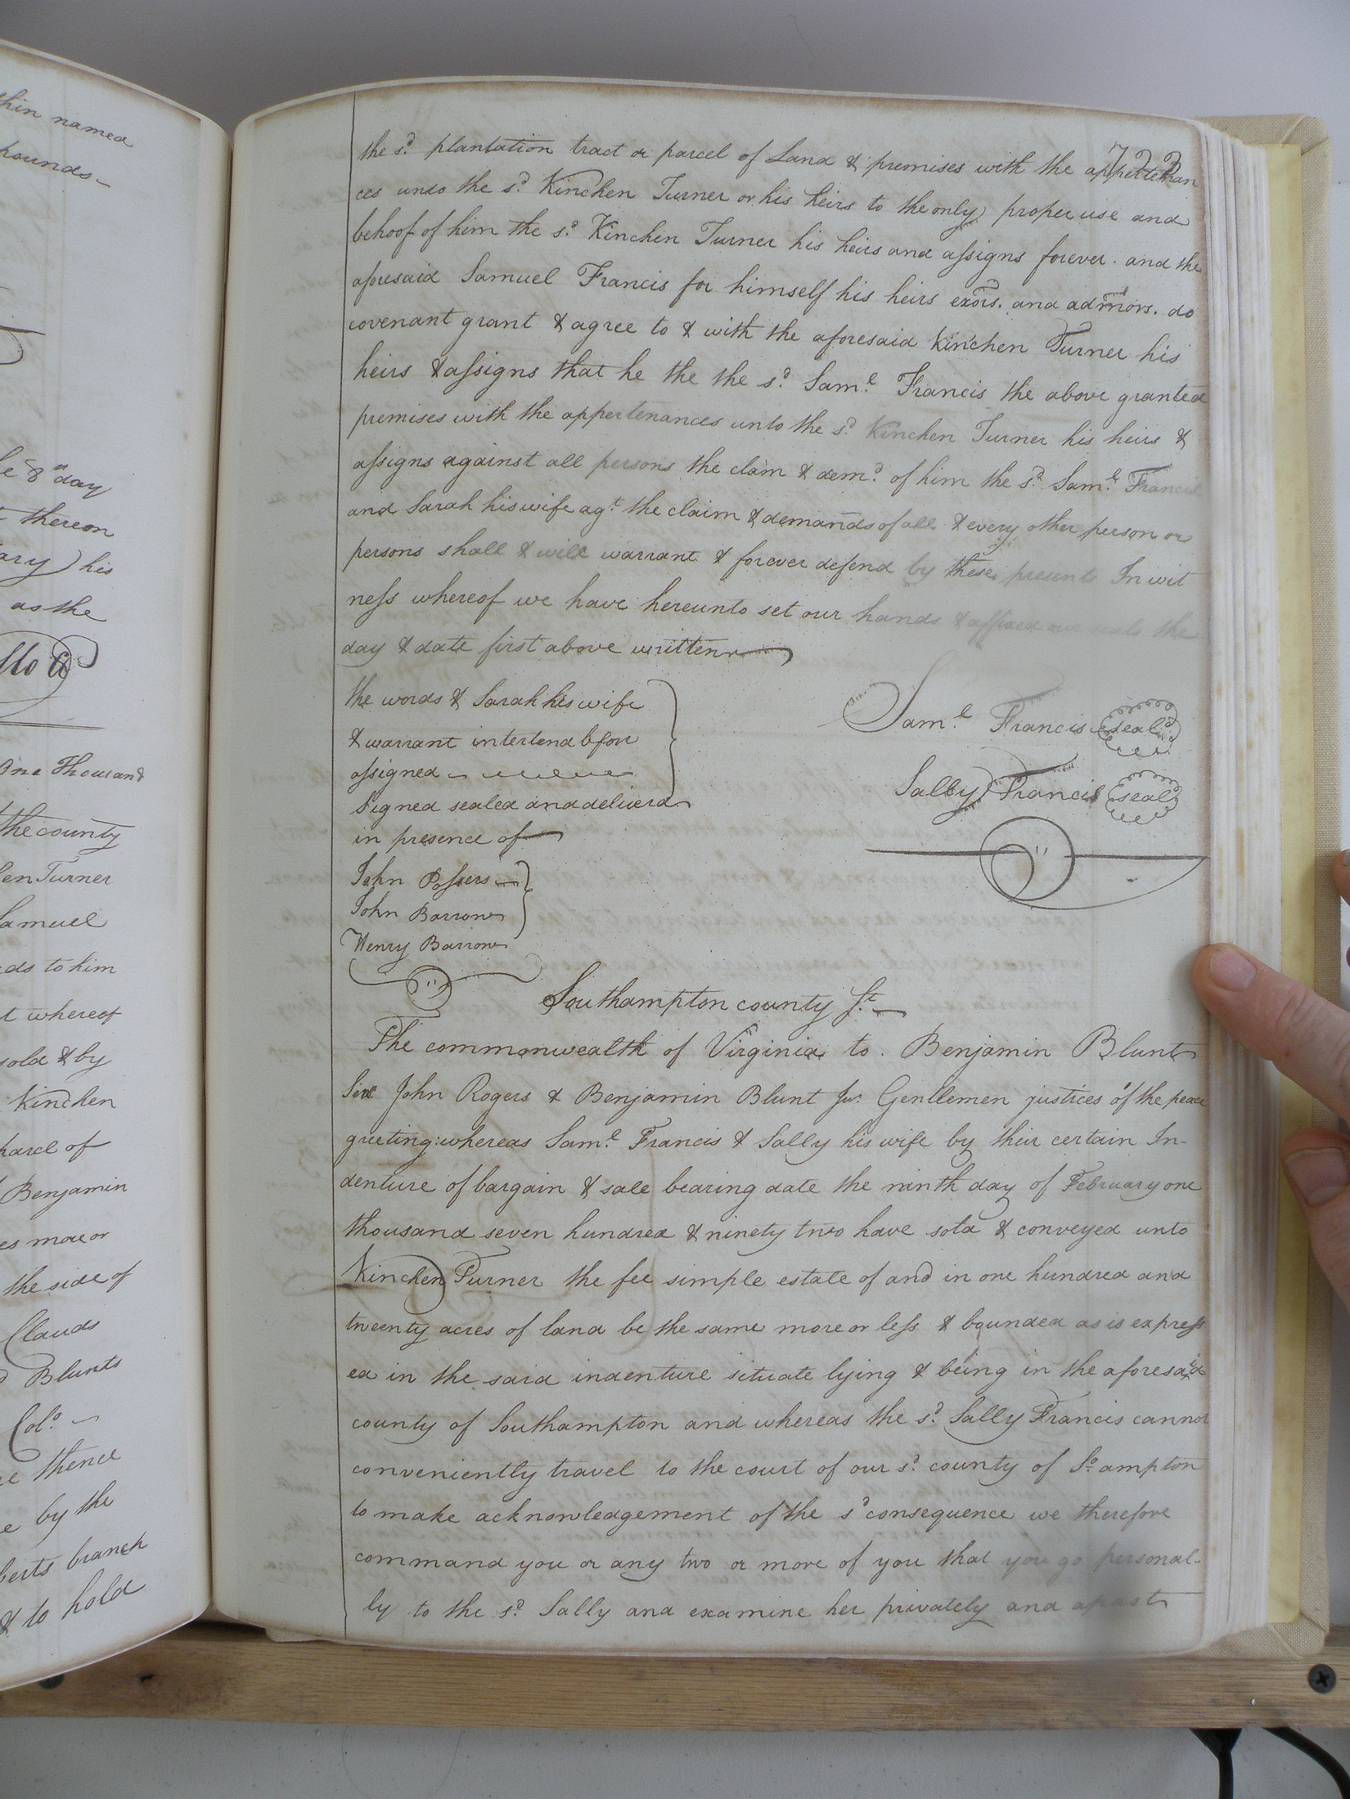 thin named
pounds
8th day
thereon
his
as the
One Thousand
the county
Turner
Samuel
to him
whereof
sold & by
Kinchen
parcel of
Benjamin
more or
the side of
Clauds
Blunts
Colo.
thence
by the
branch
& to hold
733
the sd. plantation tract or parcel of Land & premises with the appertenan
ces unto the sd. Kinchen Turner or his heirs to the only proper use and
behoof of him the sd. Kinchen Turner his heirs and assigns forever. and the
aforesaid Samuel Francis for himself his heirs exors. and admors. do
covenant grant & agree to & with the aforesaid Kinchen Turner his
heirs & assigns that he the the sd. Saml. Francis the above granted
premises with the appertenances unto the sd. Kinchen Turner his heirs &
assigns against all persons the claim & demd. of him the sd. Saml. Francis
and Sarah his wife agt. the claim & demands of all & every other person or
persons shall & will warrant & forever defend by these presents In wit
ness whereof we have hereunto set our hands & affixed our seals the
day & date first above written
the words & Sarah his wife
& warrant intertend before
assigned
Signed sealed and deliverd
in presence of
John
John Barrow
Henry Barrow
Saml. Francis seal
Sally Francis seal
Southampton county St.
The commonwealth of Virginia to Benjamin Blunt
John Rogers & Benjamin Blunt Jur. Gentlemen justices of the peace
greeting: whereas Saml. Francis & Sally his wife by their certain In-
denture of bargain & sale bearing date the ninth day of February one
thousand seven hundred & ninety two have sold & conveyed unto
Kinchen Turner the fee simple estate of and in one hundred and
twenty acres of land be the same more or less & bounded as is express
ed in the said indenture situate lying & being in the aforesaid
county of Southampton and whereas the sd. Sally Francis cannot
conveniently travel to the court of our sd. county of So.ampton
to make acknowledgement of the sd consequence we therefore
command you or any two or more of you that you go personal-
ly to the sd. Sally and examine her privately and apart